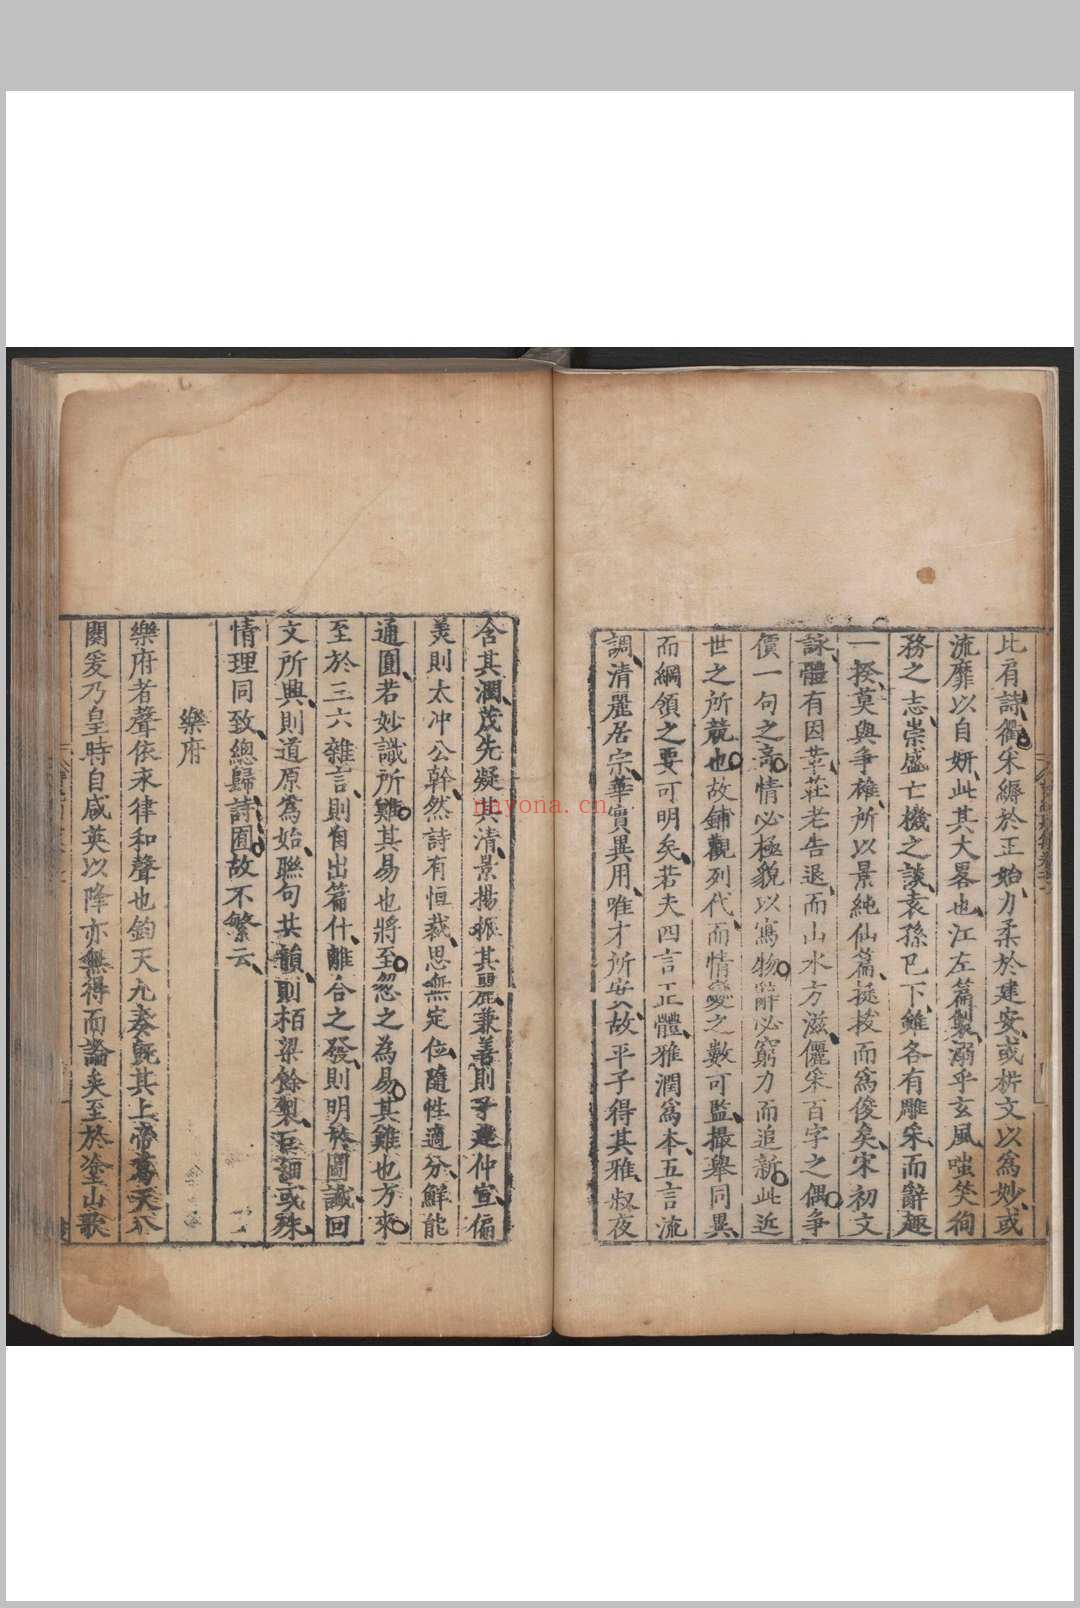 比肩詩衢采縟於正始力柔於建安或析文以爲妙或
流靡以自妍此其大畧也江左篇製溺乎玄風嗤笑徇
務之志崇盛亡機之談袁孫已下雖各有雕采而辭趣
一揆莫與爭雄所以景純仙篇挺拔而爲俊矣宋初文
詠體有因革莊老告退而山水方滋儷采百字之偶爭
價一句之奇情必極貌以寫物辭必窮力而追新此近
世之所競也故鋪觀列代而情變之數可監撮舉同異
而綱領之要可明矣若夫四言正體雅潤爲本五言流
調清麗居宗華實異用唯才所安故平子得其雅叔夜
含其潤茂先凝其清景揚振其麗兼善則子建仲宣偏
美則太冲公幹然詩有恒裁思無定位隨性適分鮮能
通圓若妙識所難其易也將至忽之為易其難也方來
至於三六雜言則自出篇什離合之發則明於圖讖回
文所興則道原為始聯句共韻則栢梁餘製巨細或殊
情理同致總歸詩囿故不繁云
樂府
樂府者聲依永律和聲也鈞天九奏旣其上帝葛天八
闋爰乃皇時自咸英以降亦無得而論矣至於塗山歌
nayona.cn